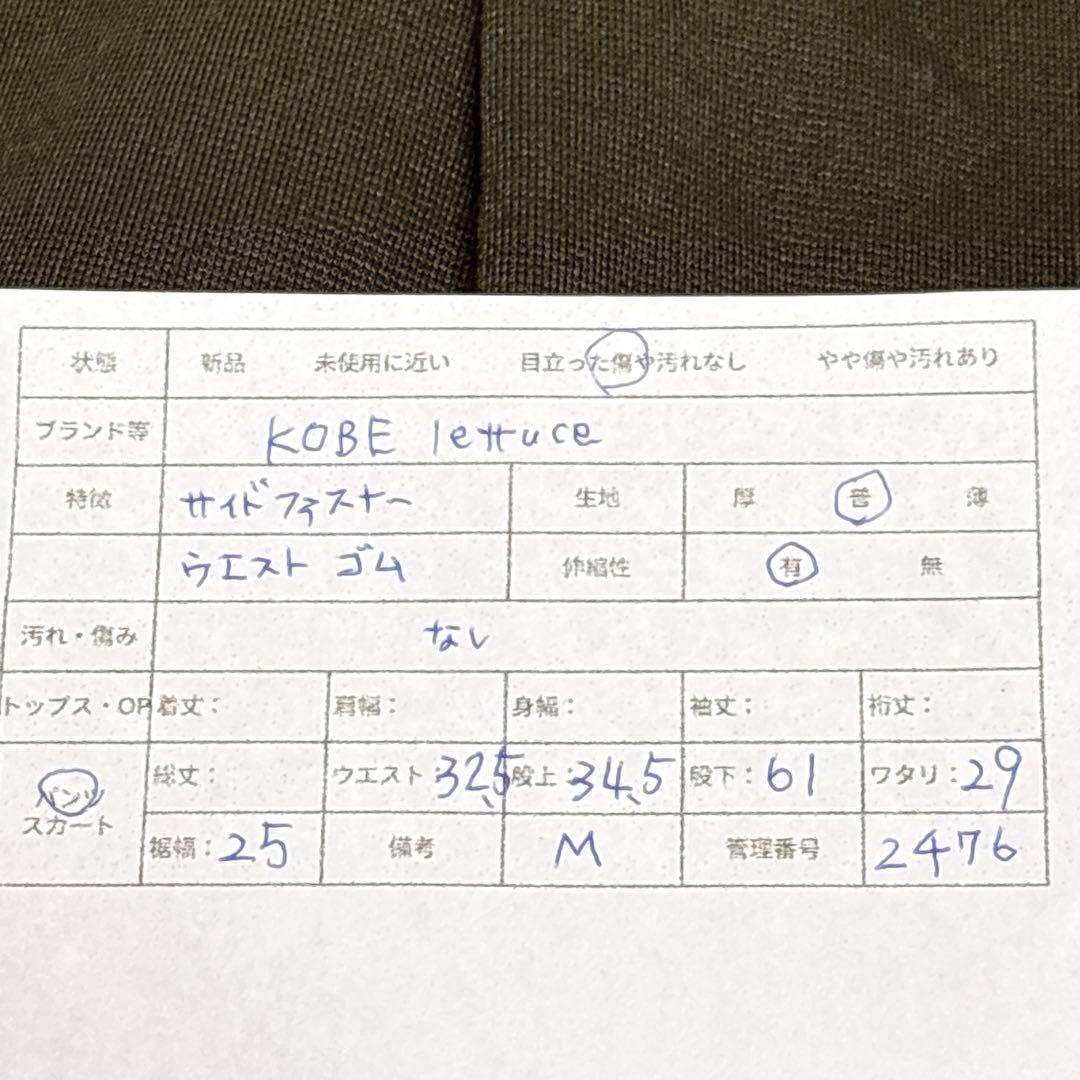 状態 新品 未使用に近い 目立った傷や汚れなし やや傷や汚れあり
ブランド等 KOBE lettuce
特徴 サイドファスナー 生地 厚 普 薄
ウエスト ゴム 伸縮性 有 無
汚れ・傷み なし
トップス・OP 着丈: 肩幅: 身幅: 袖丈: 裄丈:
パンツ 総丈: ウエスト 32.5 股上:34.5 股下:61 ワタリ:29
スカート
裾幅:25 備考 M 管理番号 2476